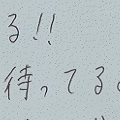 る!!
待ってる